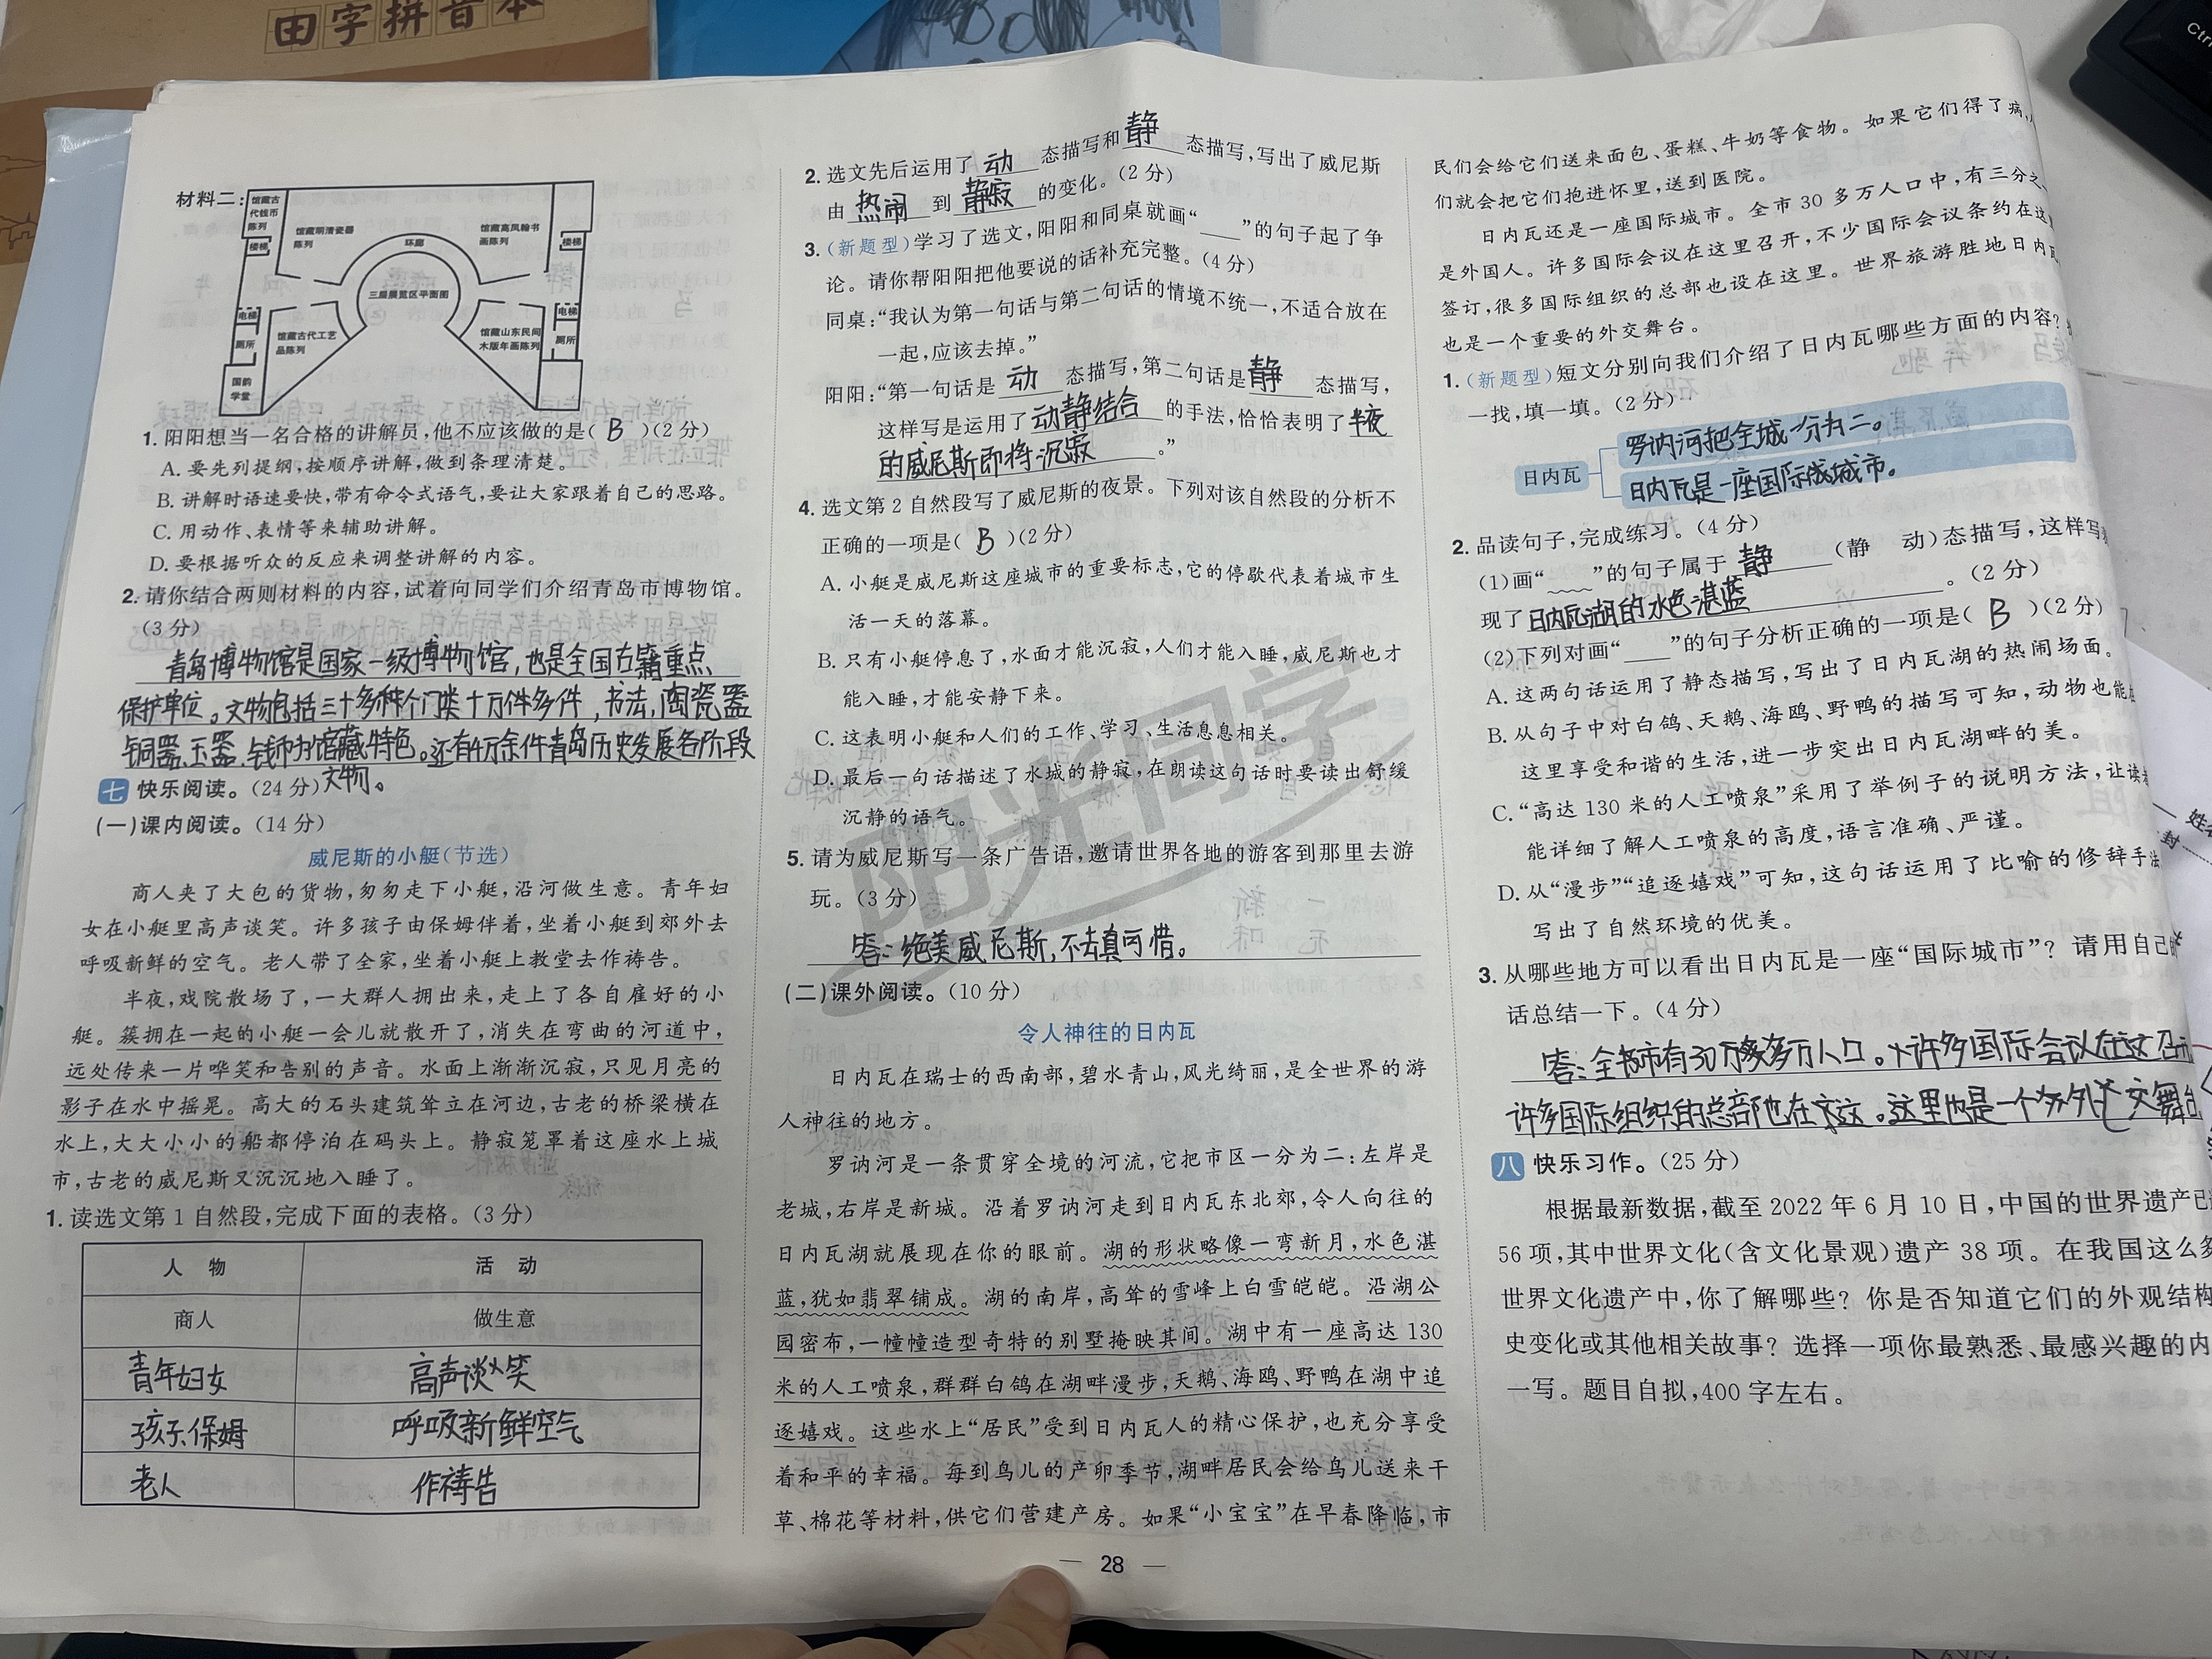 田字拼音本
Ctrl
材料二:
馆藏古
代钱币
陈列
楼梯
馆藏明清瓷器
陈列
环廊
馆藏高凤翰书
画陈列
楼梯
三层展览区平面图
电梯
电梯
厕所
馆藏古代工艺
品陈列
馆藏山东民间
木版年画陈列
厕所
国韵
学堂
1. 阳阳想当一名合格的讲解员,他不应该做的是( B )(2分)
A. 要先列提纲,按顺序讲解,做到条理清楚。
B. 讲解时语速要快,带有命令式语气,要让大家跟着自己的思路。
C. 用动作、表情等来辅助讲解。
D. 要根据听众的反应来调整讲解的内容。
2. 请你结合两则材料的内容,试着向同学们介绍青岛市博物馆。
(3分)
青岛博物馆是国家一级博物馆,也是全国古籍重点
保护单位。文物包括三十多种个门类十万件多件,书法,陶瓷器
铜器、玉器、钱币为馆藏特色。还有4万余件青岛历史发展各阶段
文物。
七 快乐阅读。(24分)
(一)课内阅读。(14分)
威尼斯的小艇(节选)
商人夹了大包的货物,匆匆走下小艇,沿河做生意。青年妇
女在小艇里高声谈笑。许多孩子由保姆伴着,坐着小艇到郊外去
呼吸新鲜的空气。老人带了全家,坐着小艇上教堂去作祷告。
半夜,戏院散场了,一大群人拥出来,走上了各自雇好的小
艇。簇拥在一起的小艇一会儿就散开了,消失在弯曲的河道中,
远处传来一片哗笑和告别的声音。水面上渐渐沉寂,只见月亮的
影子在水中摇晃。高大的石头建筑耸立在河边,古老的桥梁横在
水上,大大小小的船都停泊在码头上。静寂笼罩着这座水上城
市,古老的威尼斯又沉沉地入睡了。
1. 读选文第1自然段,完成下面的表格。(3分)
人 物 活 动
商人 做生意
青年妇女 高声谈笑
孩子、保姆 呼吸新鲜空气
老人 作祷告
2. 选文先后运用了 动 态描写和 静 态描写,写出了威尼斯
由 热闹 到 静寂 的变化。(2分)
3. (新题型)学习了选文,阳阳和同桌就画“____”的句子起了争
论。请你帮阳阳把他要说的话补充完整。(4分)
同桌:“我认为第一句话与第二句话的情境不统一,不适合放在
一起,应该去掉。”
阳阳:“第一句话是 动 态描写,第二句话是 静 态描写,
这样写是运用了 动静结合 的手法,恰恰表明了 半夜
的威尼斯即将沉寂 。”
4. 选文第2自然段写了威尼斯的夜景。下列对该自然段的分析不
正确的一项是( B )(2分)
A. 小艇是威尼斯这座城市的重要标志,它的停歇代表着城市生
活一天的落幕。
B. 只有小艇停息了,水面才能沉寂,人们才能入睡,威尼斯也才
能入睡,才能安静下来。
C. 这表明小艇和人们的工作、学习、生活息息相关。
D. 最后一句话描述了水城的静寂,在朗读这句话时要读出舒缓
沉静的语气。
阳光同学
5. 请为威尼斯写一条广告语,邀请世界各地的游客到那里去游
玩。(3分)
答:绝美威尼斯,不去真可惜。
(二)课外阅读。(10分)
令人神往的日内瓦
日内瓦在瑞士的西南部,碧水青山,风光绮丽,是全世界的游
人神往的地方。
罗讷河是一条贯穿全境的河流,它把市区一分为二:左岸是
老城,右岸是新城。沿着罗讷河走到日内瓦东北郊,令人向往的
日内瓦湖就展现在你的眼前。湖的形状略像一弯新月,水色湛
蓝,犹如翡翠铺成。湖的南岸,高耸的雪峰上白雪皑皑。沿湖公
园密布,一幢幢造型奇特的别墅掩映其间。湖中有一座高达130
米的人工喷泉,群群白鸽在湖畔漫步,天鹅、海鸥、野鸭在湖中追
逐嬉戏。这些水上“居民”受到日内瓦人的精心保护,也充分享受
着和平的幸福。每到鸟儿的产卵季节,湖畔居民会给鸟儿送来干
草、棉花等材料,供它们营建产房。如果“小宝宝”在早春降临,市
— 28 —
民们会给它们送来面包、蛋糕、牛奶等食物。如果它们得了病,
们就会把它们抱进怀里,送到医院。
日内瓦还是一座国际城市。全市30多万人口中,有三分之
是外国人。许多国际会议在这里召开,不少国际会议条约在这
签订,很多国际组织的总部也设在这里。世界旅游胜地日内瓦
也是一个重要的外交舞台。
1. (新题型)短文分别向我们介绍了日内瓦哪些方面的内容?
一找,填一填。(2分)
日内瓦
罗讷河把全城一分为二。
日内瓦是一座国际城市。
2. 品读句子,完成练习。(4分)
(1)画“____”的句子属于 静 (静 动)态描写,这样写
现了 日内瓦湖的水色湛蓝 。(2分)
(2)下列对画“____”的句子分析正确的一项是( B )(2分)
A. 这两句话运用了静态描写,写出了日内瓦湖的热闹场面。
B. 从句子中对白鸽、天鹅、海鸥、野鸭的描写可知,动物也能
这里享受和谐的生活,进一步突出日内瓦湖畔的美。
C. “高达130米的人工喷泉”采用了举例子的说明方法,让读
能详细了解人工喷泉的高度,语言准确、严谨。
D. 从“漫步”“追逐嬉戏”可知,这句话运用了比喻的修辞手法
写出了自然环境的优美。
3. 从哪些地方可以看出日内瓦是一座“国际城市”?请用自己的
话总结一下。(4分)
答:全市有30多万人口。许多国际会议在这召开
许多国际组织的总部也在这。这里也是一个外交舞台
八 快乐习作。(25分)
根据最新数据,截至2022年6月10日,中国的世界遗产已
56项,其中世界文化(含文化景观)遗产38项。在我国这么多
世界文化遗产中,你了解哪些?你是否知道它们的外观结构
史变化或其他相关故事?选择一项你最熟悉、最感兴趣的内
一写。题目自拟,400字左右。
姓名
封